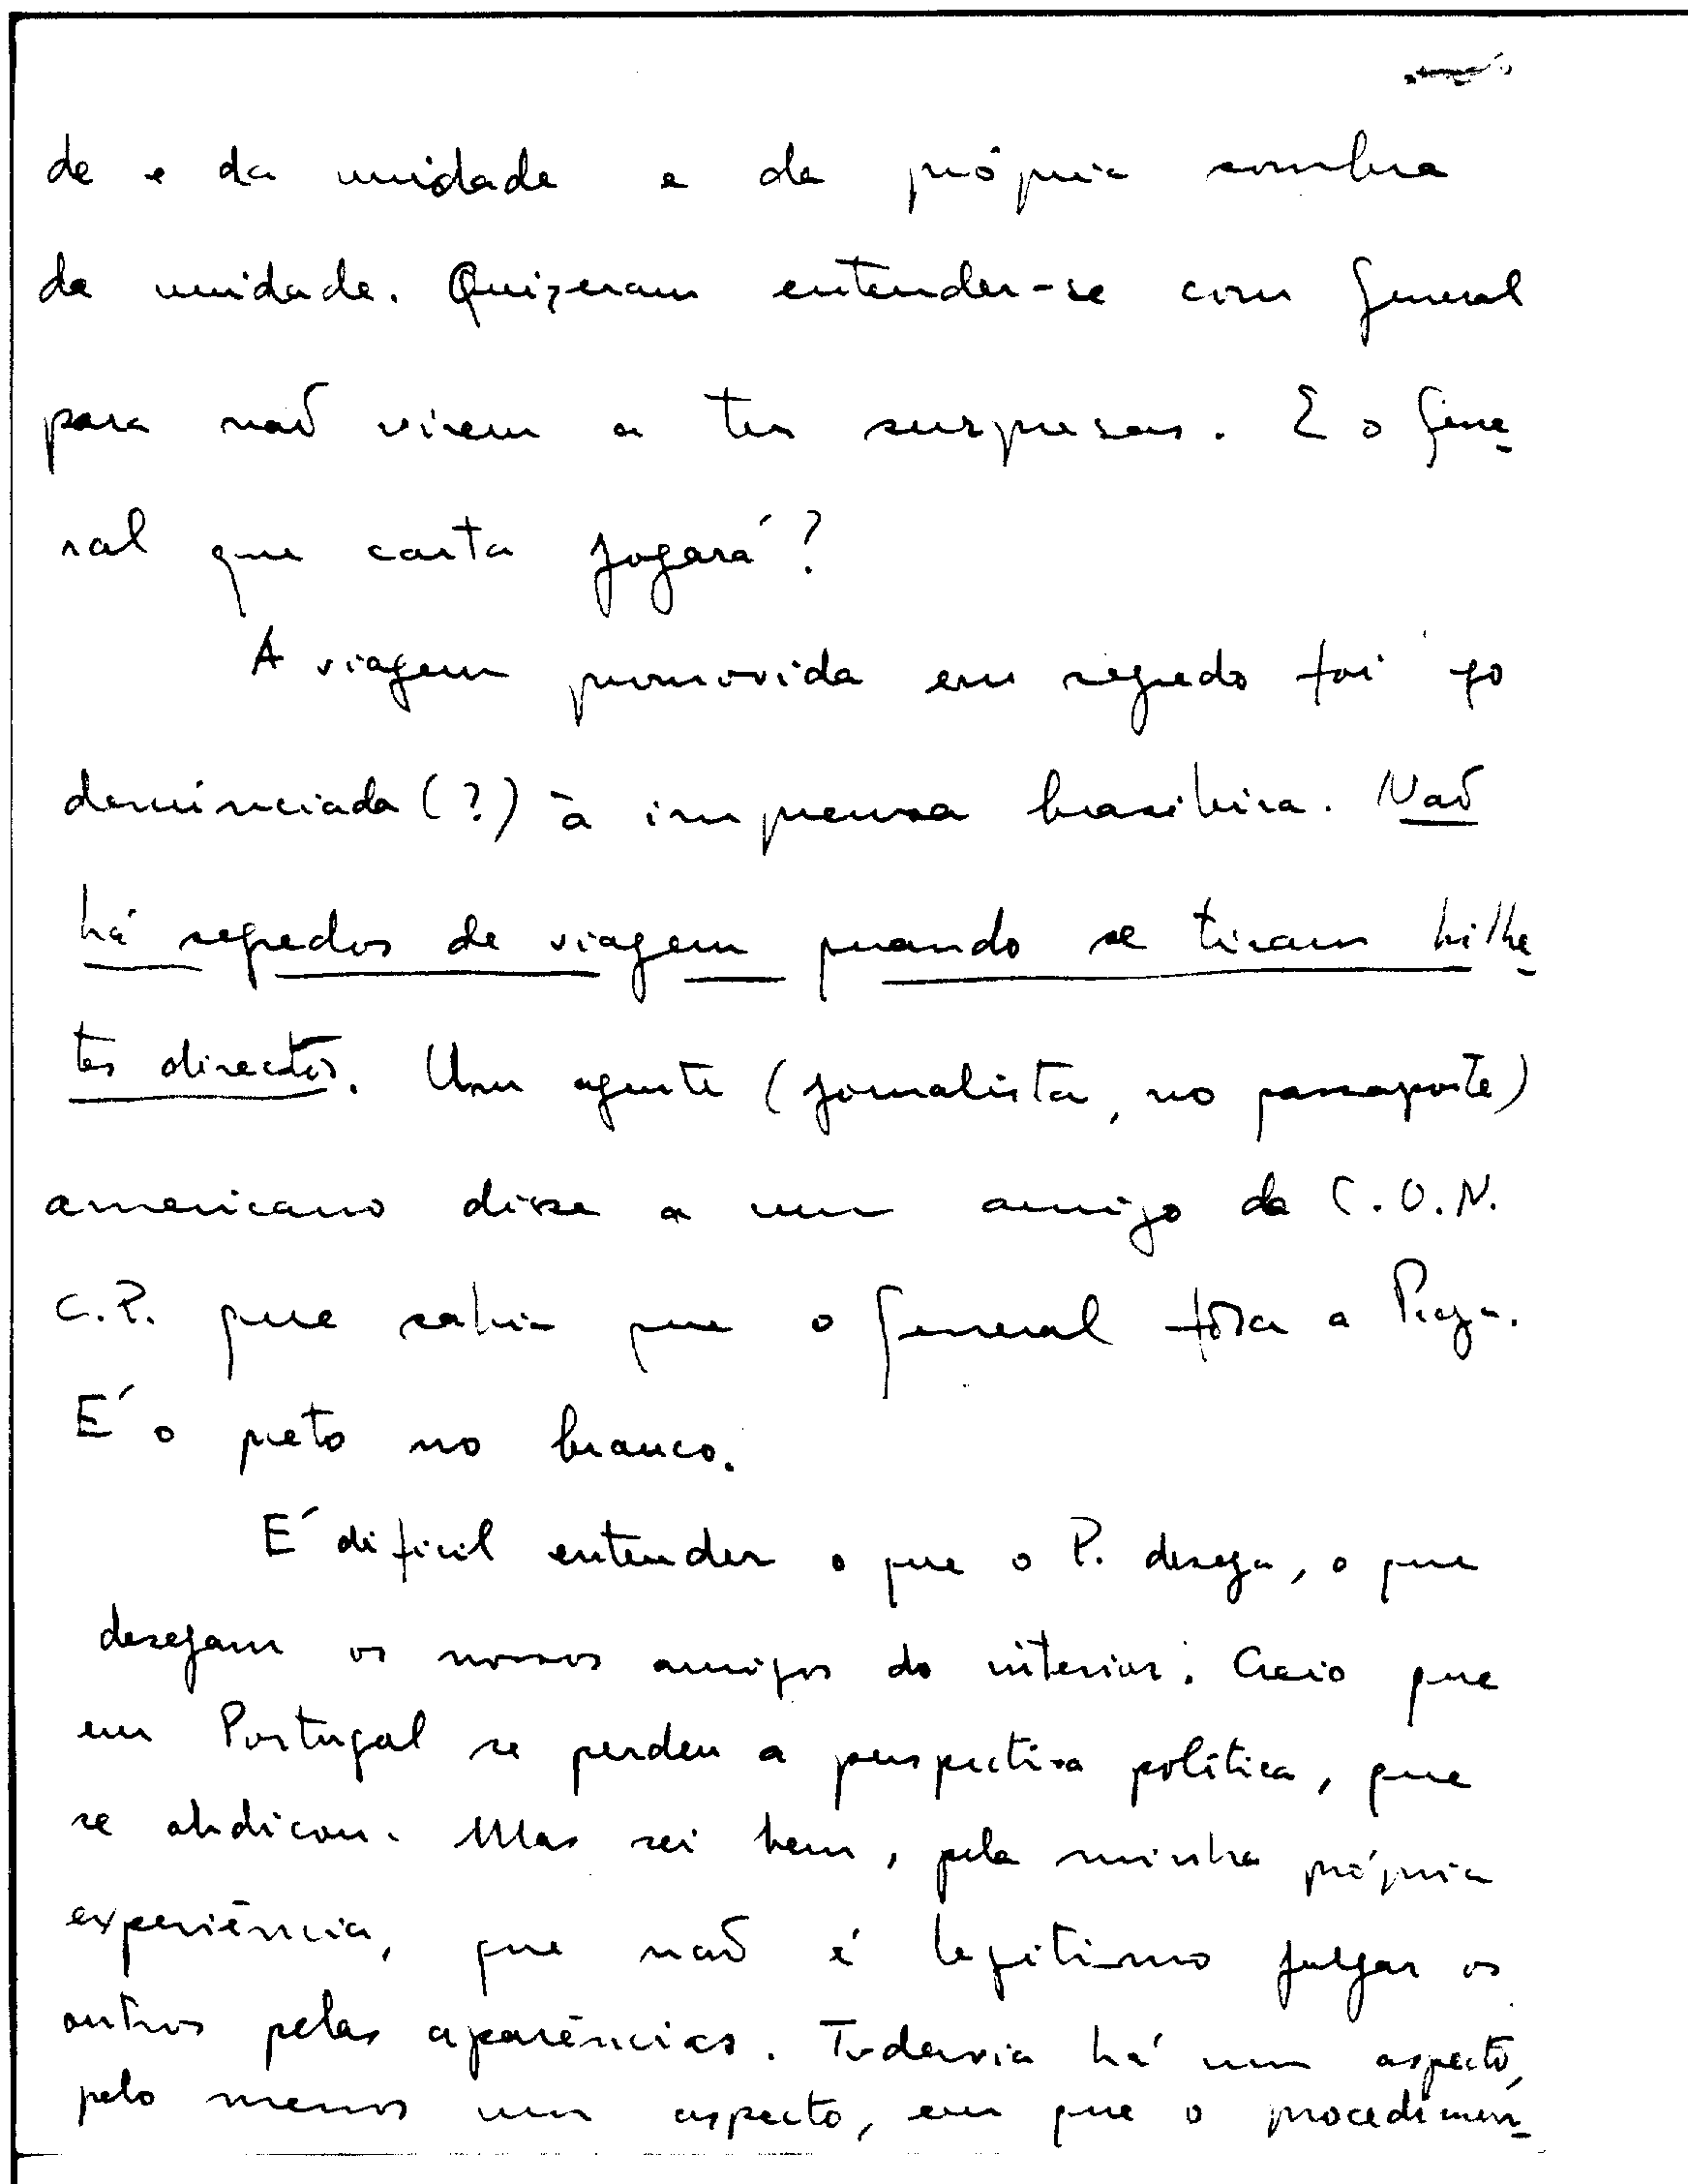 de e da unidade e da própria sombra
da unidade. Quizeram entender-se com General
para não virem a ter surpresas. E o Gene-
ral que carta jogará?
A viagem promovida em segredo foi
denunciada (?) à imprensa brasileira. Não
há segredos de viagem quando se tiram bilhe-
tes directos. Um agente (jornalista, no passaporte)
americano disse a um amigo da C.O.N.
C.P. que sabia que o General fôra a Praga.
É o preto no branco.
É dificil entender o que o P. deseja, o que
desejam os nossos amigos do interior. Creio que
em Portugal se perdeu a perspectiva política, que
se abdicou. Mas sei bem, pela minha própria
experiência, que não é legitimo julgar os
outros pelas aparências. Todavia há um aspecto,
pelo menos um aspecto, em que o procedimen-